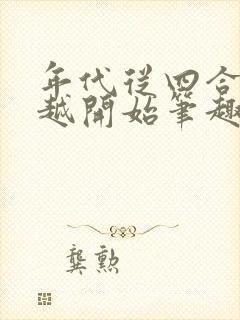 年代從四合
越開始筆趣
龔勲